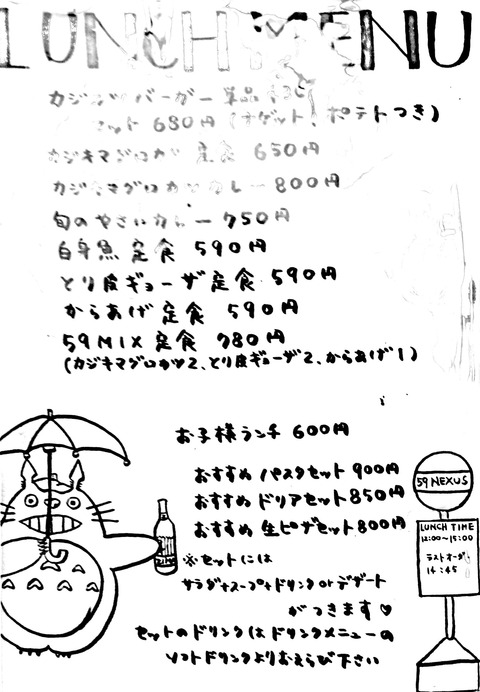 LUNCH MENU
カジキバーガー 単品
セット 680円 (ナゲット、ポテトつき)
カジキマグロカツ 定食 650円
カジキマグロカツカレー 800円
旬のやさいカレー 750円
白身魚 定食 590円
とり皮ギョーザ定食 590円
からあげ 定食 590円
59MIX 定食 780円
(カジキマグロカツ2、とり皮ギョーザ2、からあげ1)
お子様ランチ 600円
おすすめ パスタセット 900円
おすすめ ドリアセット 850円
おすすめ 生ピザセット 800円
※セットには
サラダ+スープ+ドリンク or デザート
がつきます♡
セットのドリンクは ドリンクメニューの
ソフトドリンクよりおえらび下さい
59 NEXUS
LUNCH TIME
12:00〜15:00
ラストオーダー
14:45